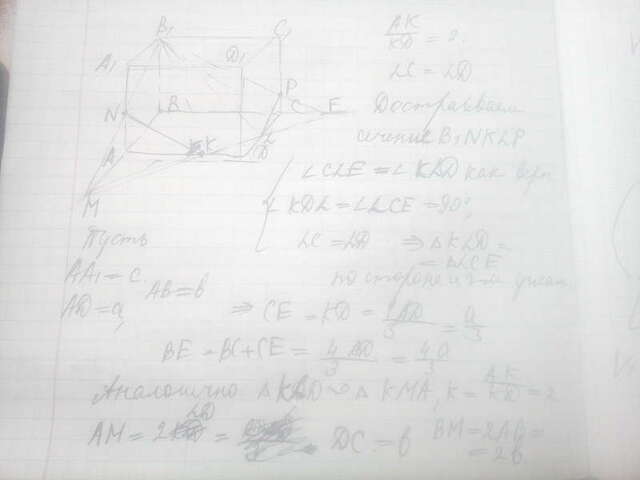 B₁ C₁
A₁ D₁
N B P C E
A K L D
M
AK/KD = 2.
LC = LD
Достраиваем
сечение B₁NKLP
∠CLE = ∠KLD как верт
∠KDL = ∠LCE = 90°,
LC = LD ⇒ △KLD =
= △LCE
по стороне и 2м углам
Пусть
AA₁ = c, AB = b
AD = a,
⇒ CE = KD = 1AD/3 = a/3
BE = BC + CE = 4AD/3 = 4a/3
Аналогично △KLD ∾ △KMA, K = AK/KD = 2
AM = 2LD = DC = b BM = 2AB =
= 2b.